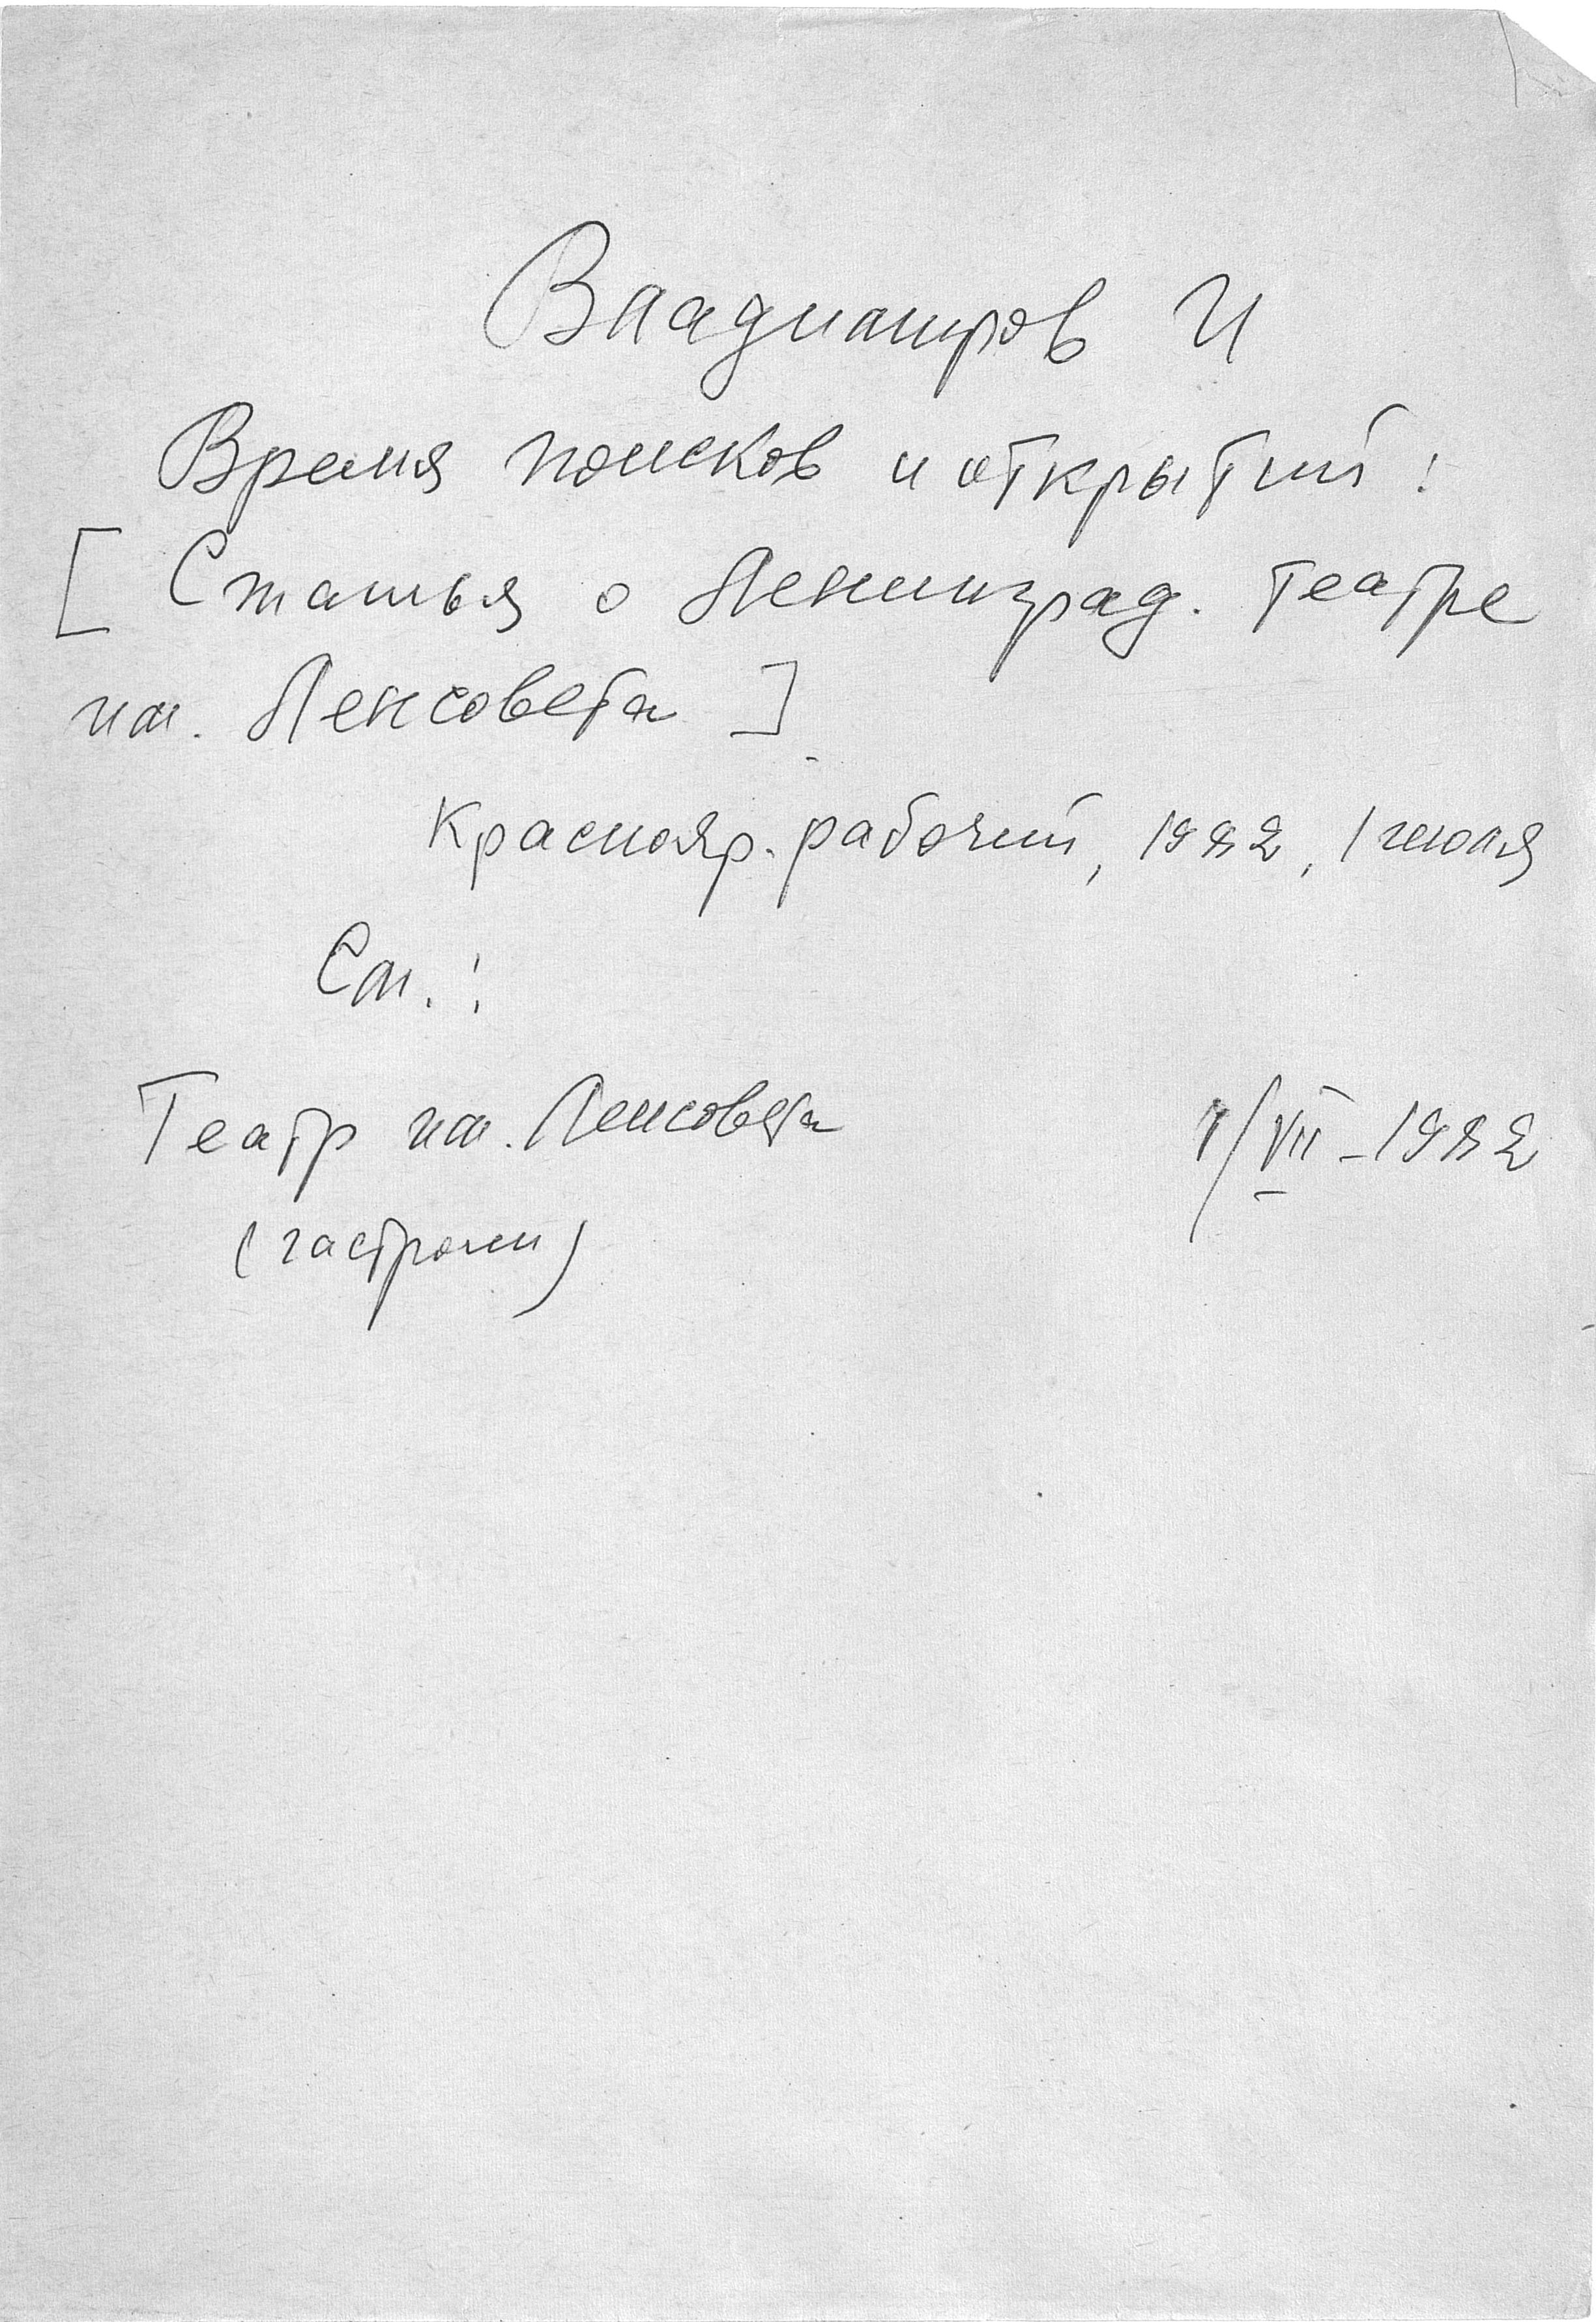 Владимиров И
Время поисков и открытий :
[ Статья о Ленинград. театре
им. Ленсовета ]
Краснояр. рабочий, 1982, 1 июля
См. :
Театр им. Ленсовета 1/VII – 1982
(гастроли)